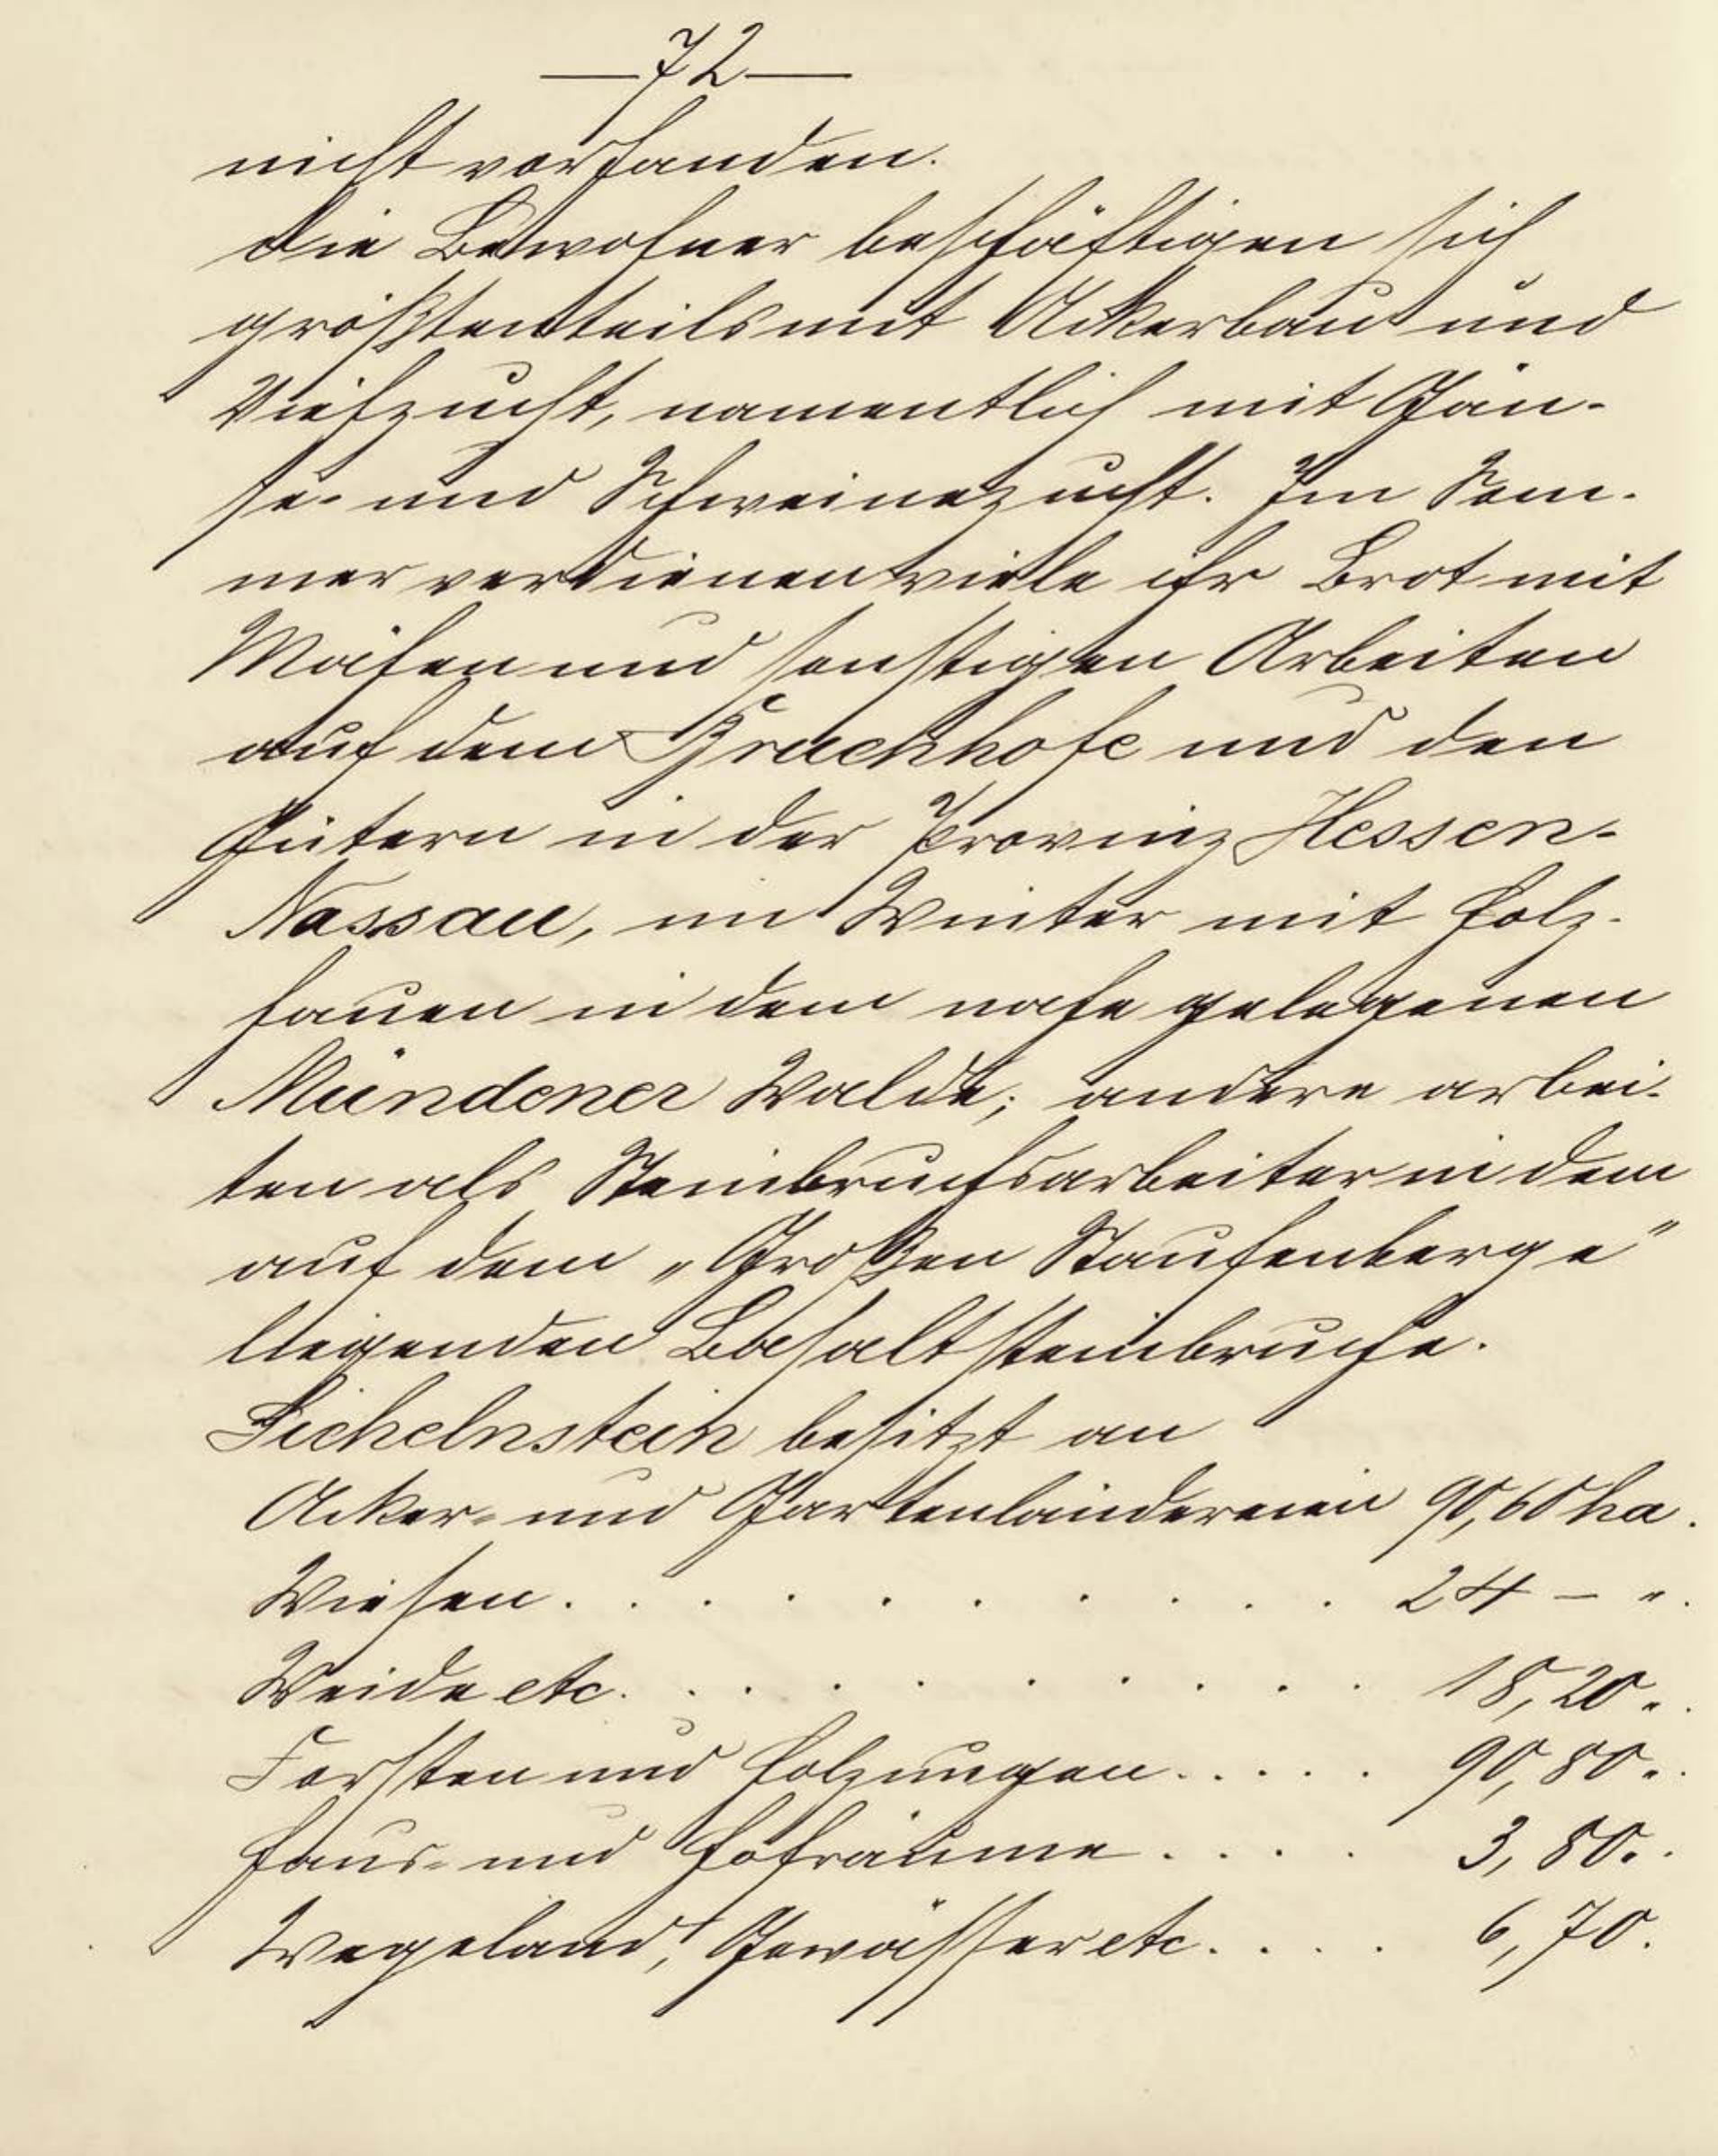 — 72 —
nicht vorhanden.
Die Bewohner beschäftigen sich
größtenteils mit Ackerbau und
Viehzucht, namentlich mit Gän-
se- und Schweinezucht. Im Som-
mer verdienen viele ihr Brot mit
Mähen und sonstigen Arbeiten
auf dem und den
Gütern in der Provinz Hessen-
Nassau, im Winter mit Holz-
hauen in dem nahe gelegenen
Mündener Walde; andere arbei-
ten als Steinbruchsarbeiter in dem
auf dem „Großen Staufenberge"
liegenden Basaltsteinbruche.
Sichelnstein besitzt an
Acker- und Gartenländereien 90,60 ha.
Wiesen. . . . . . . . . . . 24 — ".
Weide etc. . . . . . . . . . 18,20 ".
Forsten und Holzungen. . . . . 90,80 ".
Haus- und Hofräume . . . . 3,80 ".
Wegeland, Gewässer etc. . . . . 6,70.